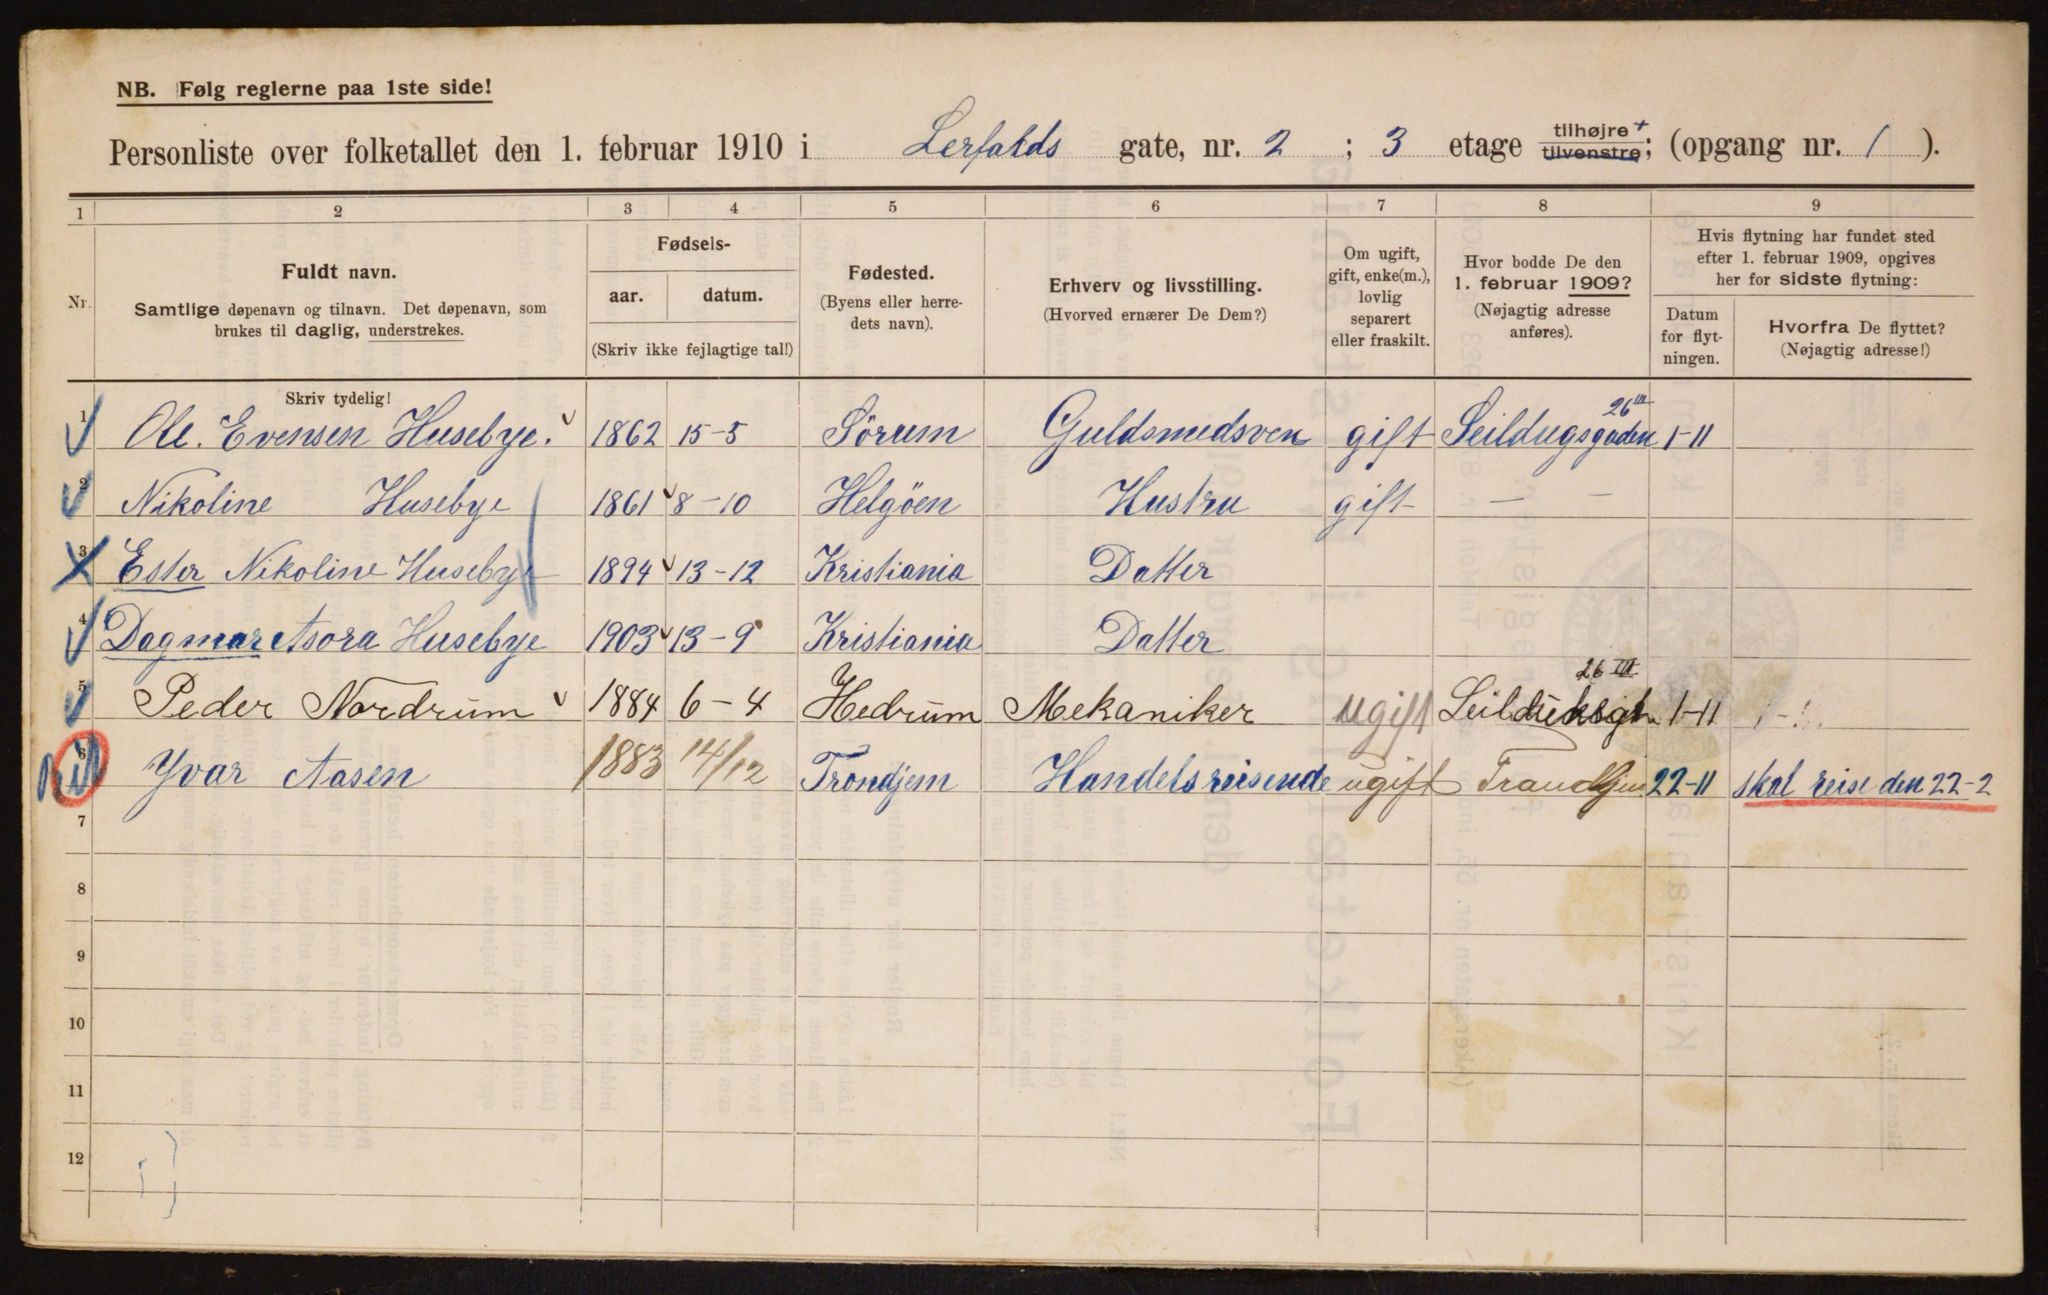 NB. Følg reglerne paa 1ste side!
Personliste over folketallet den 1. februar 1910 i Lerfalds gate, nr. 2 ; 3 etage tilhøjre + tilvenstre; (opgang nr. 1 ).
1 2 3 4 5 6 7 8 9
Nr.
Fuldt navn.
Samtlige døpenavn og tilnavn. Det døpenavn, som
brukes til daglig, understrekes.
Skriv tydelig!
Fødsels-
aar. datum.
(Skriv ikke fejlagtige tal!)
Fødested.
(Byens eller herre-
dets navn).
Erhverv og livsstilling.
(Hvorved ernærer De Dem?)
Om ugift,
gift, enke(m.),
lovlig
separert
eller fraskilt.
Hvor bodde De den
1. februar 1909?
(Nøjagtig adresse
anføres).
Hvis flytning har fundet sted
efter 1. februar 1909, opgives
her for sidste flytning:
Datum
for flyt-
ningen.
Hvorfra De flyttet?
(Nøjagtig adresse!)
1 Ole. Evensen Husebye. 1862 15-5 Sörum Guldsmedsven gift Seildugsgaden 26 III 1-11
2 Nikoline Husebye 1861 8-10 Helgöen Hustru gift — —
3 Ester Nikoline Husebye 1894 13-12 Kristiania Datter
4 Dagmar Asora Husebye 1903 13-9 Kristiania Datter
5 Peder Nordrum 1884 6-4 Hedrum Mekaniker ugift Seilduksgt. 26 III 1-11
6 Yvar Aasen 1883 14/12 Trondjem Handelsreisende ugift Trondhjem 22-11 skal reise den 22-2
7
8
9
10
11
12